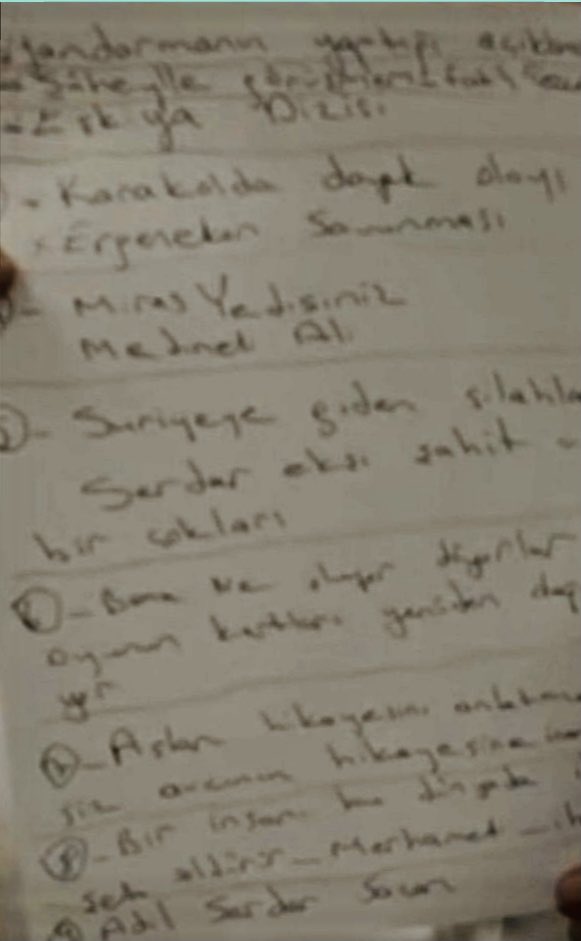 Jandarmanın yaptığı açıklam
- Süheylle
- Eşkıya Dizisi
- Karakolda dayak olayı
- Ergenekon Savunması
- Miras Yedisiniz
Mehmet Ali
- Suriyeye giden silahla
Serdar ekşi şahit
bir çokları
- Bana ne oluyor diyorlar
oyunun kartları yeniden
- Aslan hikayesini
siz avcının hikayesine
8 - Bir insanı bu dünyada
şeh aldırır - Merhamet - ih
9 Adil Serdar Saçan